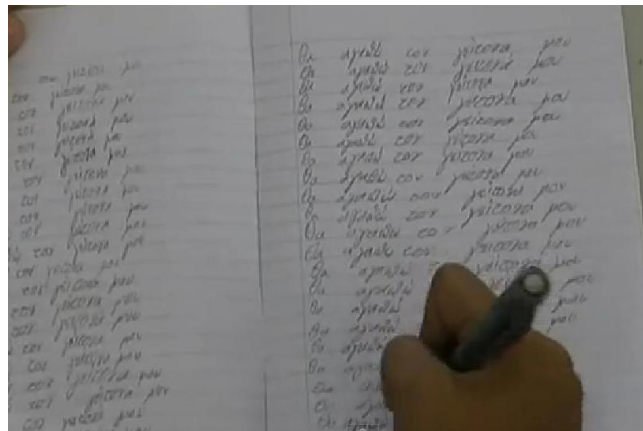 τον γείτονα μου
τον γείτονα μου
τον γείτονα μου
τον γείτονα μου
τον γείτονα μου
τον γείτονα μου
τον γείτονα μου
τον γείτονα μου
τον γείτονα μου
τον γείτονα μου
τον γείτονα μου
τον γείτονα μου
τον γείτονα μου
τον γείτονα μου
τον γείτονα μου
τον γείτονα μου
τον γείτονα μου
τον γείτονα μου
τον γείτονα μου
τον γείτονα μου
Θα αγαπώ τον γείτονα μου
Θα αγαπώ τον γείτονα μου
Θα αγαπώ τον γείτονα μου
Θα αγαπώ τον γείτονα μου
Θα αγαπώ τον γείτονα μου
Θα αγαπώ τον γείτονα μου
Θα αγαπώ τον γείτονα μου
Θα αγαπώ τον γείτονα μου
Θα αγαπώ τον γείτονα μου
Θα αγαπώ τον γείτονα μου
Θα αγαπώ τον γείτονα μου
Θα αγαπώ τον γείτονα μου
Θα αγαπώ γείτονα μου
Θα αγαπώ μου
Θα αγαπώ μου
Θα αγαπώ μου
Θα αγαπώ
Θα
Θα
Θα